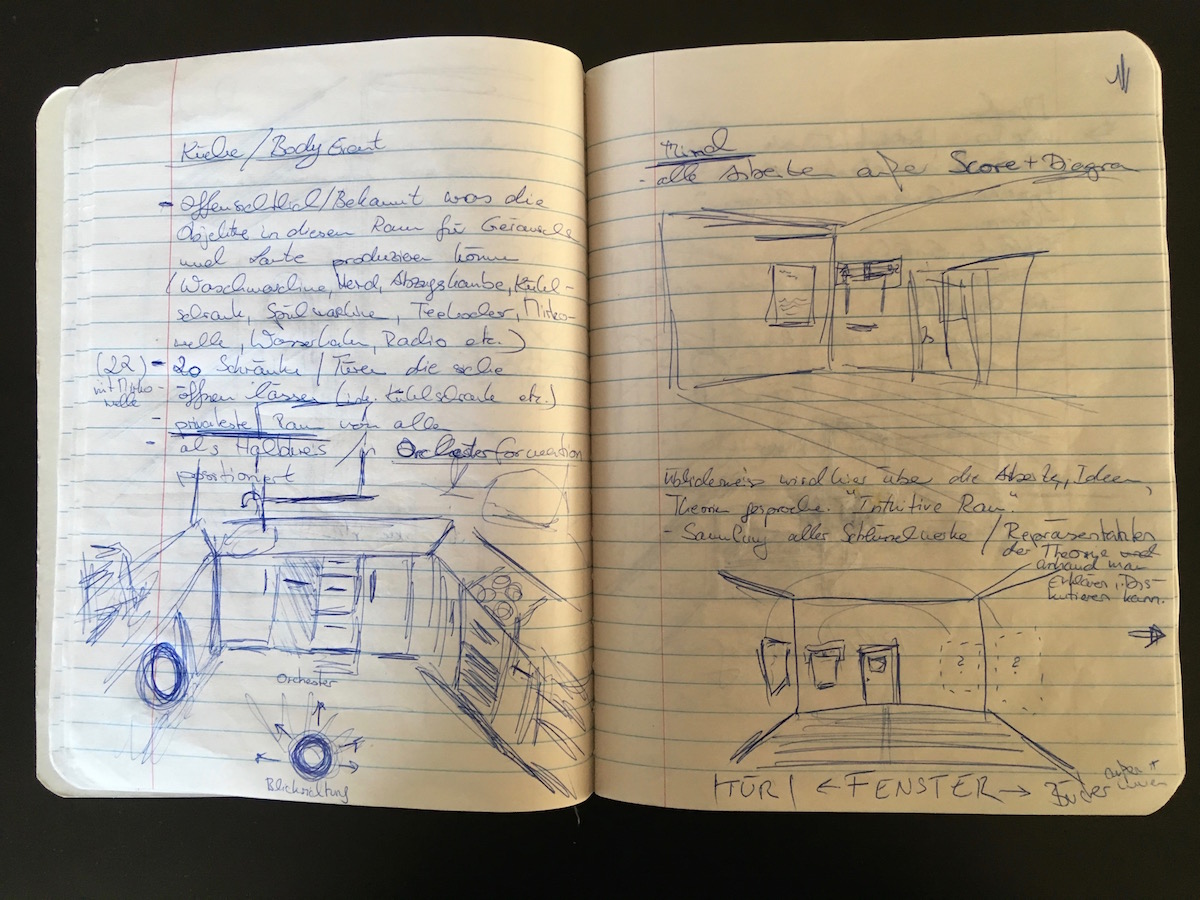 Küche / Body Event
- Offensichtlich/Bekannt was die
Objekte in diesen Raum für Geräusche
und Laute produzieren können
(Waschmaschine, Herd, Abzugshaube, Kühl-
schrank, Spülmaschine, Teekocher, Mikro-
welle, Wasserhahn, Radio etc.)
(22) - 20 Schränke / Türen die sich
mit Mikro-
welle
öffnen lassen (ink. Kühlschrank etc.)
- privateste Raum von alle
- als Halbkreis / Orchesterformation
positioniert
Orchester
Blickrichtung
Mind
- alle Arbeiten außer Score + Diagra
Üblicherweise wird hier über die Arbeiten, Ideen,
Theorien gesprochen. "Intuitive Raum".
- Sammlung aller Schlüsselwerke / Repräsentanten
der Theorie und
anhand man
erklären, Dis-
kutieren kann.
2 2
|TÜR| ← FENSTER →